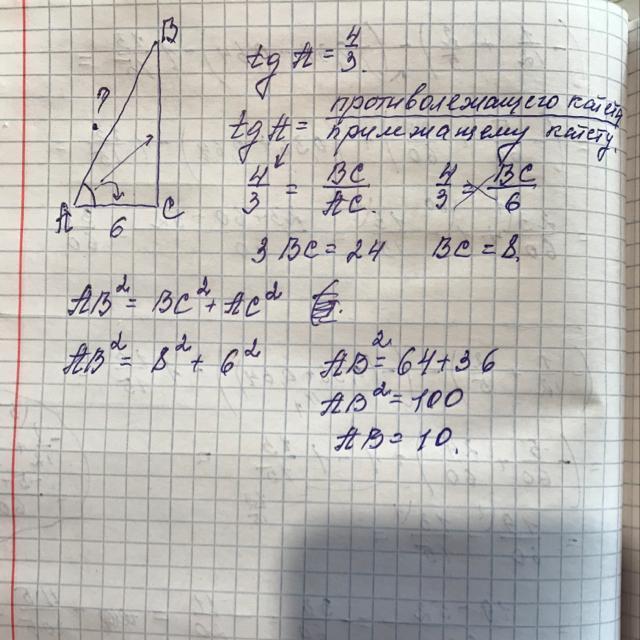 B
?
A
6
C
tg A = 4/3.
tg A = противолежащего катету / прилежащему катету.
4/3 = BC/AC.
4/3 = BC/6
3 BC = 24
BC = 8.
AB² = BC² + AC²
AB² = 8² + 6²
AB² = 64 + 36
AB² = 100
AB = 10.